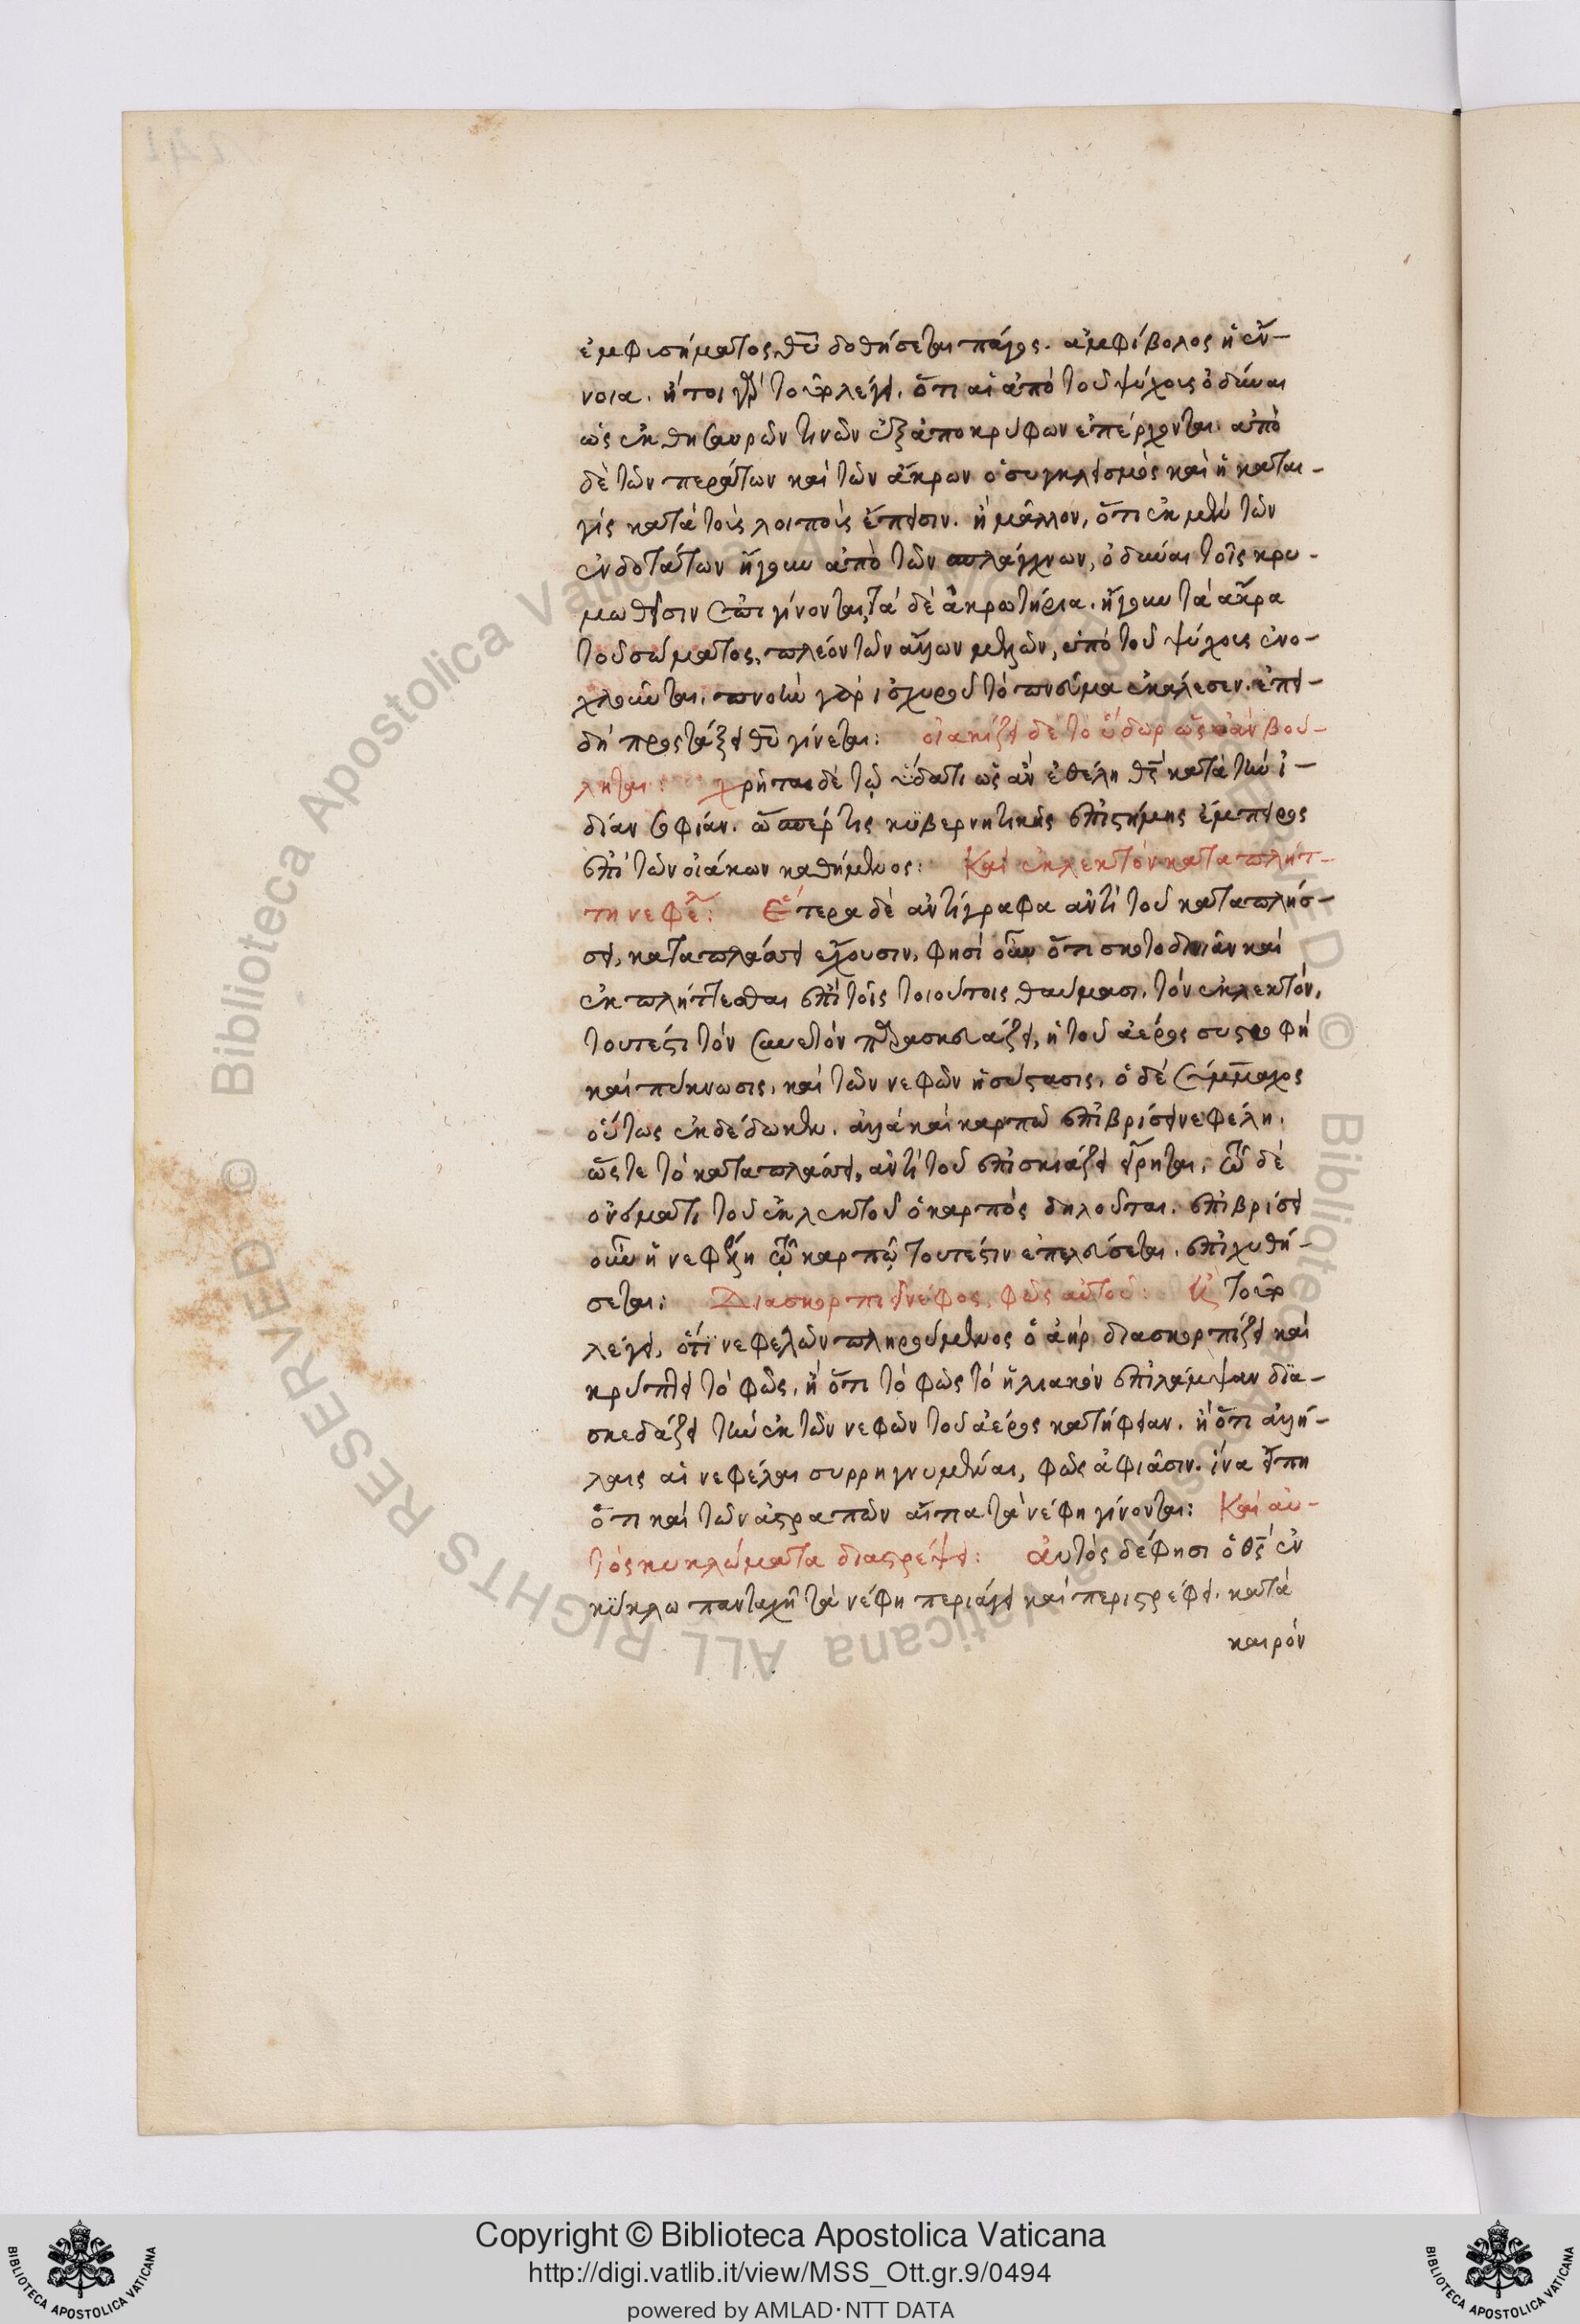 ἐμφυσήματος θυ δοθήσεται πάγος. ἀμφίβολος ἡ ἔν-
νοια. ἤτοι γὰρ τοῦτο λέγει. ὅτι αἱ ἀπὸ τοῦ ψύχους ὀδύναι
ὡς ἐκ θησαυρῶν τινῶν ἐξ ἀποκρύφων ἐπέρχονται. ἀπὸ
δὲ τῶν περάτων καὶ τῶν ἄκρων ὁ συγκλεισμὸς καὶ ἡ καται-
γὶς κατὰ τοὺς λοιποὺς ἔπεισιν. ἢ μᾶλλον, ὅτι ἐκ μὲν τῶν
ἐνδοτάτων ἤγουν ἀπὸ τῶν σπλάγχνων, ὀδύναι τοῖς κρυ-
μωθεῖσιν ἐπιγίνονται, τὰ δὲ ἀκρωτήρια. ἤγουν τὰ ἄκρα
τοῦ σώματος, πλέον τῶν ἄλλων μελῶν, ὑπὸ τοῦ ψύχους ἐνο-
χλοῦνται. πνοὴν γὰρ ἰσχυροῦ τὸ πνεῦμα ἐκάλεσεν. ἐπει-
δὴ προστάξει θυ γίνεται: οἰακίζει δὲ τὸ ὕδωρ ὡς ἐὰν βού-
ληται: χρῆται δὲ τῷ ὕδατι ὡς ἂν ἐθέλη θς κατὰ τὴν ἰ-
δίαν σοφίαν. ὥσπερ τις κυβερνητικῆς ἐπιστήμης ἔμπειρος
ἐπὶ τῶν οἰάκων καθήμενος: Καὶ ἐκλεκτὸν καταπλήτ-
τη νεφέλ: Ἕτερα δὲ ἀντίγραφα ἀντὶ τοῦ καταπλήσ-
σει, καταπλάσσει ἔχουσιν. φησὶ οὖν ὅτι σκοτοδινιᾶν καὶ
ἐκπλήττεσθαι ἐπὶ τοῖς τοιούτοις θαύμασι. τὸν ἐκλεκτόν,
τουτέστι τὸν συνετὸν παρασκευάζει, ἡ τοῦ ἀέρος συστροφὴ
καὶ πύκνωσις, καὶ τῶν νεφῶν ἡ σύστασις. ὁ δὲ Σύμμαχος
οὕτως ἐκδέδωκεν. ἀλλὰ καὶ καρπῷ ἐπιβρίσει νεφέλη.
ὥστε τὸ καταπλάσσει, ἀντὶ τοῦ ἐπισκιάζει εἴρηται. τῷ δὲ
ὀνόματι τοῦ ἐκλεκτοῦ ὁ καρπὸς δηλοῦται. ἐπιβρίσει
οὖν ἡ νεφέλη τῷ καρπῷ τουτέστιν ἐπελεύσεται. ἐπιχυθή-
σεται: Διασκορπιεῖ νέφος, φῶς αὐτοῦ: ἢ τοῦτο
λέγει, ὅτι νεφελῶν πληρούμενος ὁ ἀὴρ διασκορπίζει καὶ
κρύπτει τὸ φῶς, ἢ ὅτι τὸ φῶς τὸ ἡλιακὸν ἐπιλάμψαν δια-
σκεδάζει τὴν ἐκ τῶν νεφῶν τοῦ ἀέρος κατήφειαν. ἢ ὅτι ἀλλή-
λαις αἱ νεφέλαι συρρηγνυμέναι, φῶς ἀφιᾶσιν. ἵνα εἴπη
ὅτι καὶ τῶν ἀστραπῶν αἴτια τὰ νέφη γίνονται: Καὶ αὐ-
τὸς κυκλώματα διαστρέψει: αὐτὸς δέ φησι ὁ θς ἐν
κύκλω πανταχῆ τὰ νέφη περιάγει καὶ περιστρέφει. κατὰ
καιρὸν
Copyright © Biblioteca Apostolica Vaticana
http://digi.vatlib.it/view/MSS_Ott.gr.9/0494
powered by AMLAD·NTT DATA